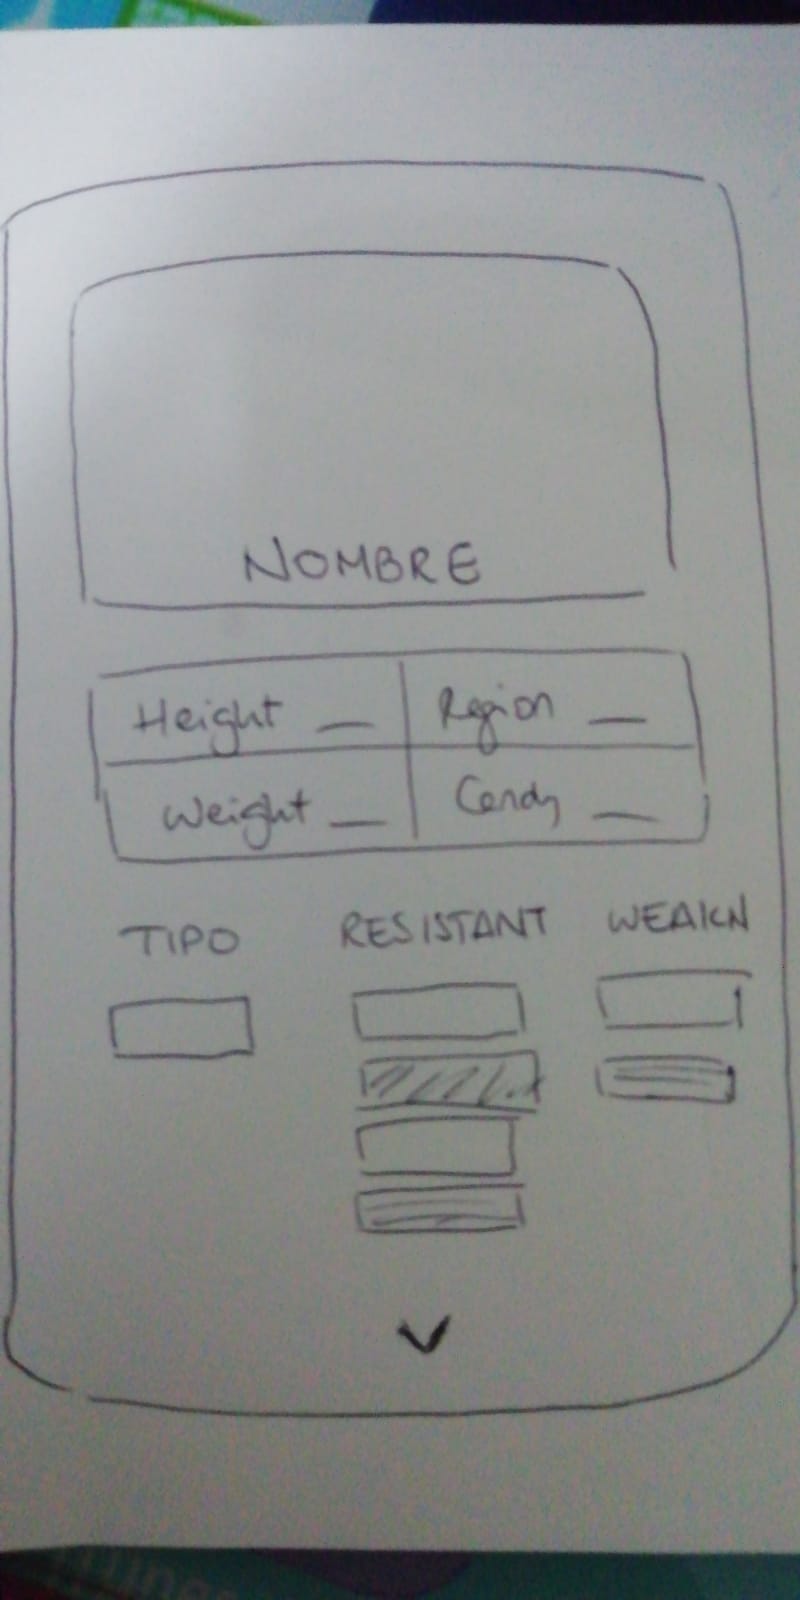 NOMBRE
Height __ Region __
Weight __ Candy __
TIPO RESISTANT WEAKN